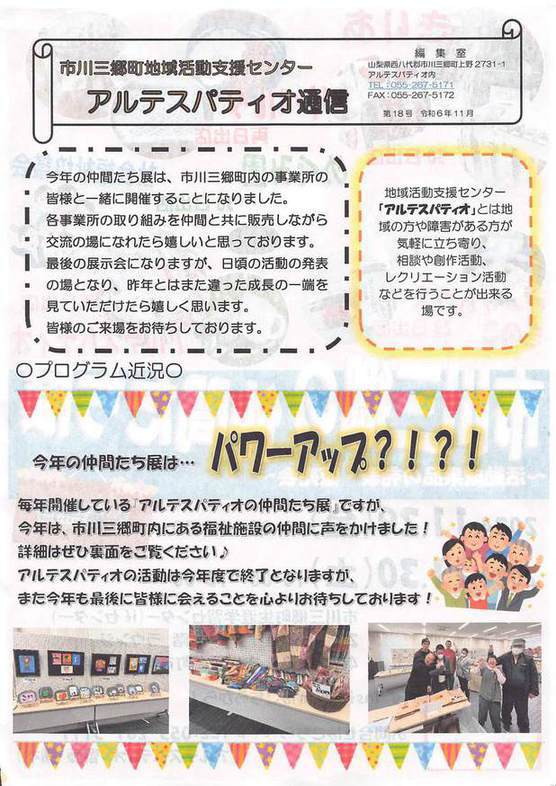 市川三郷町地域活動支援センター
アルテスパティオ通信
編集室
山梨県西八代郡市川三郷町上野2731-1
アルテスパティオ内
TEL:055-267-5171
FAX:055-267-5172
第18号 令和6年11月
今年の仲間たち展は、市川三郷町内の事業所の
皆様と一緒に開催することになりました。
各事業所の取り組みを仲間と共に販売しながら
交流の場になれたら嬉しいと思っております。
最後の展示会になりますが、日頃の活動の発表
の場となり、昨年とはまた違った成長の一端を
見ていただけたら嬉しく思います。
皆様のご来場をお待ちしております。
地域活動支援センター
「アルテスパティオ」とは地
域の方や障害がある方が
気軽に立ち寄り、
相談や創作活動、
レクリエーション活動
などを行うことが出来る
場です。
〇プログラム近況〇
今年の仲間たち展は…
パワーアップ?!?!
毎年開催している『アルテスパティオの仲間たち展』ですが、
今年は、市川三郷町内にある福祉施設の仲間に声をかけました!
詳細はぜひ裏面をご覧ください♪
アルテスパティオの活動は今年度で終了となりますが、
また今年も最後に皆様に会えることを心よりお待ちしております!